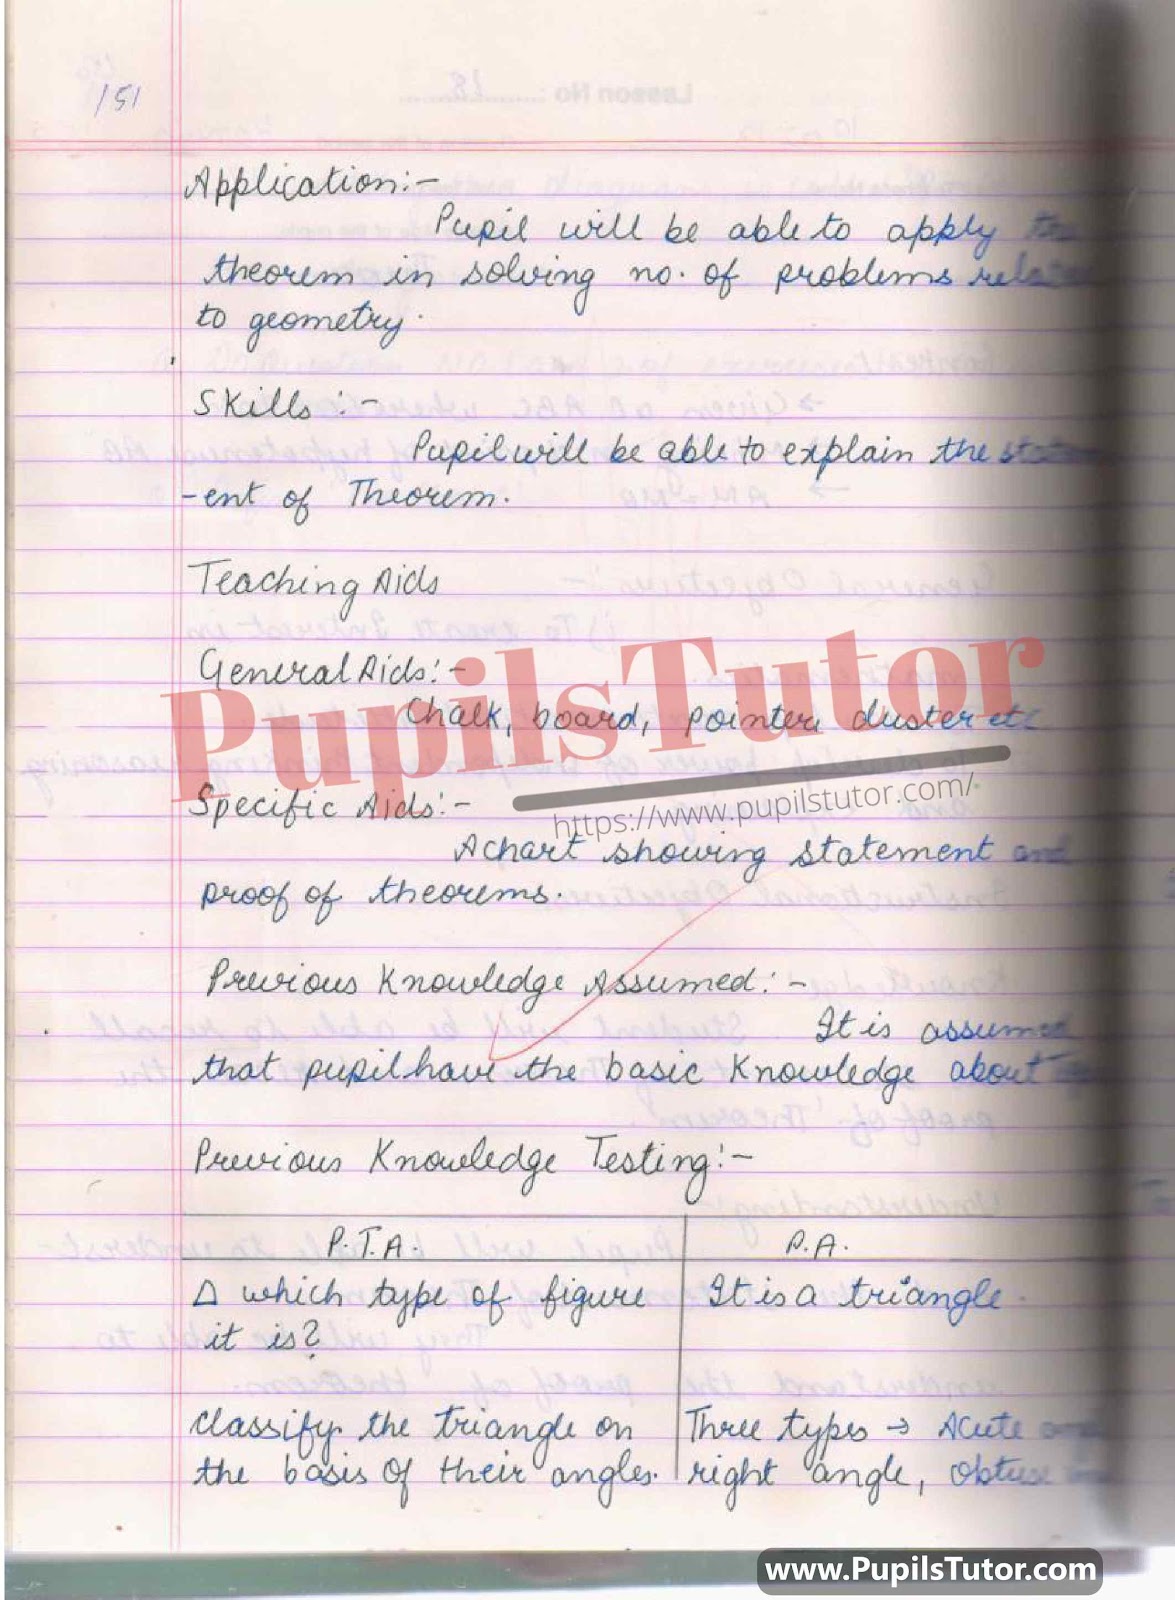 151
Application:-
Pupil will be able to apply the
theorem in solving no. of problems
to geometry.
Skills :-
Pupil will be able to explain the
-ent of Theorem.
Teaching Aids
General Aids:-
Chalk, board, pointer, duster etc
PupilsTutor
https://www.pupilstutor.com/
Specific Aids:-
A chart showing statement and
proof of theorems.
Previous Knowledge Assumed:-
It is assumed
that pupil have the basic Knowledge about
Previous Knowledge Testing:-
P.T.A. P.A.
Δ which type of figure It is a triangle.
it is?
Classify the triangle on Three types → Acute
the basis of their angles. right angle, Obtuse
www.PupilsTutor.com